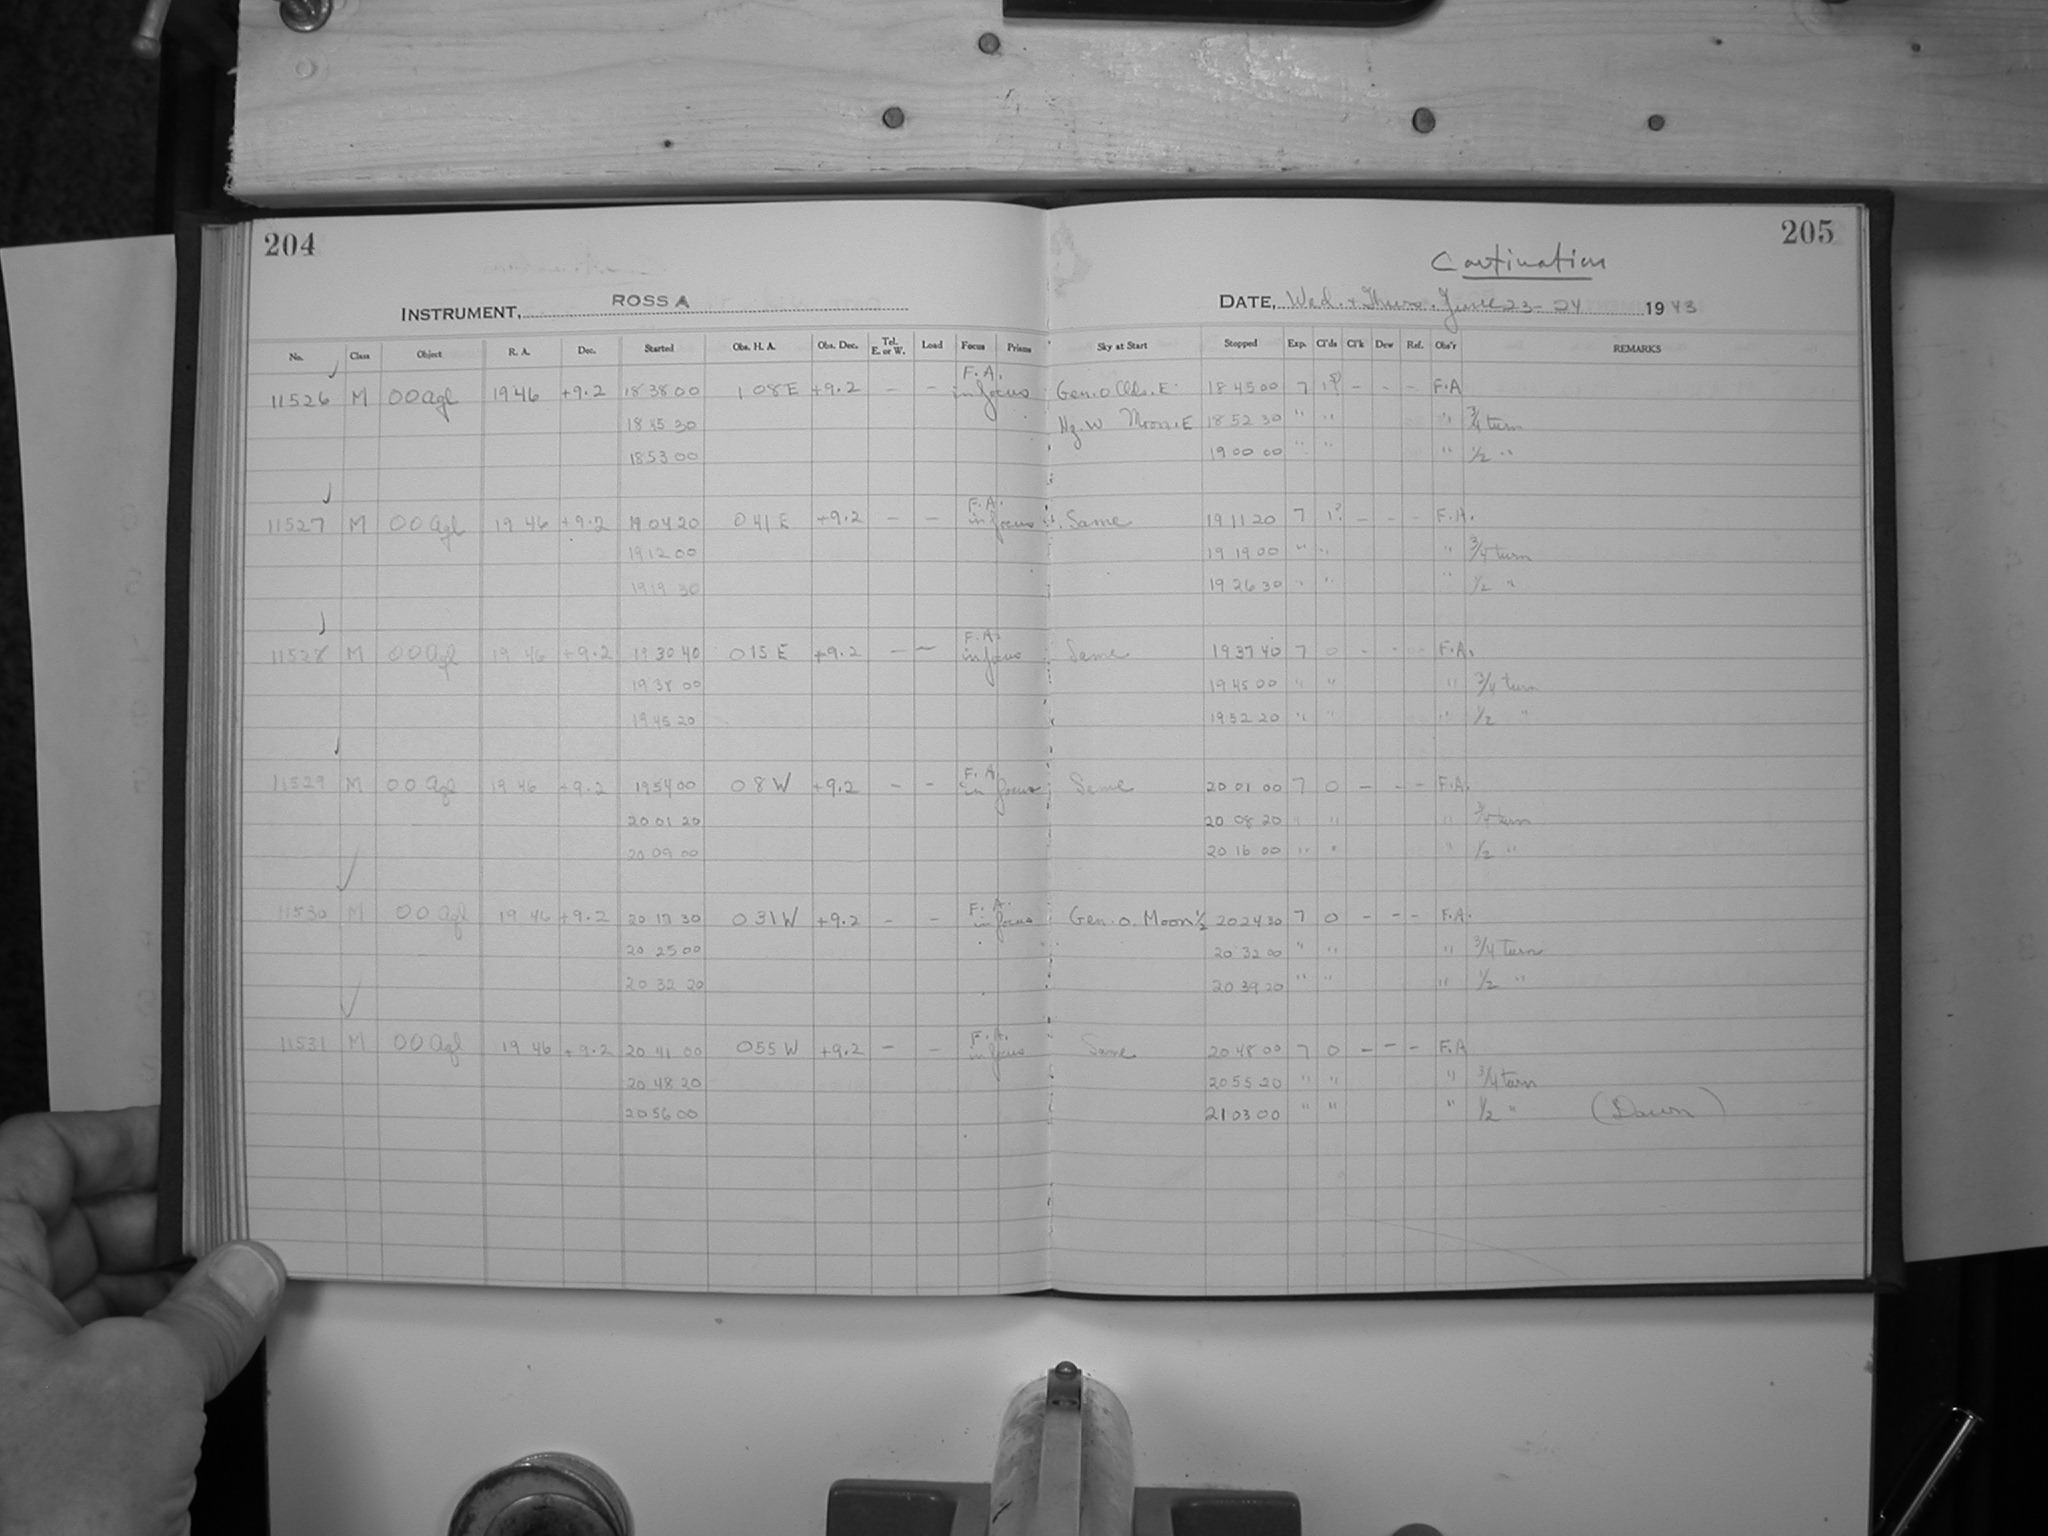 204
205
Continuation
INSTRUMENT, ROSS A
DATE, Wed. + Thurs. June 23-24 1943
No. Class Object R. A. Dec. Started Obs. H. A. Obs. Dec. Tel. E. or W. Load Focus Prisms Sky at Start Stopped Exp. Cl'ds Cl'k Dew Ref. Obs'r REMARKS
11526 M 00 Aql 19 46 +9.2 18 38 00 1 08 E +9.2 – – F.A. in focus Gen. 0 Clds. E. 18 45 00 7 1? – – – F.A
18 45 30 Hz. W Moon. E 18 52 30 " " " 3/4 turn
18 53 00 19 00 00 " " " 1/2 "
11527 M 00 Aql 19 46 +9.2 19 04 20 0 41 E +9.2 – – F.A. in focus Same 19 11 20 7 1? – – – F.A.
19 12 00 19 19 00 " " " 3/4 turn
19 19 30 19 26 30 " " " 1/2 "
11528 M 00 Aql 19 46 +9.2 19 30 40 0 15 E +9.2 – – F.A. in focus Same 19 37 40 7 0 – – – F.A.
19 38 00 19 45 00 " " " 3/4 turn
19 45 20 19 52 20 " " " 1/2 "
11529 M 00 Aql 19 46 +9.2 19 54 00 0 8 W +9.2 – – F.A in focus Same 20 01 00 7 0 – – – F.A.
20 01 20 20 08 20 " " " 3/4 turn
20 09 00 20 16 00 " " " 1/2 "
11530 M 00 Aql 19 46 +9.2 20 17 30 0 31 W +9.2 – – F.A. in focus Gen. 0. Moon 1/2 20 24 30 7 0 – – – F.A.
20 25 00 20 32 00 " " " 3/4 turn
20 32 20 20 39 20 " " " 1/2 "
11531 M 00 Aql 19 46 +9.2 20 41 00 0 55 W +9.2 – – F.A. in focus Same 20 48 00 7 0 – – – F.A
20 48 20 20 55 20 " " " 3/4 turn
20 56 00 21 03 00 " " " 1/2 " (Dawn)